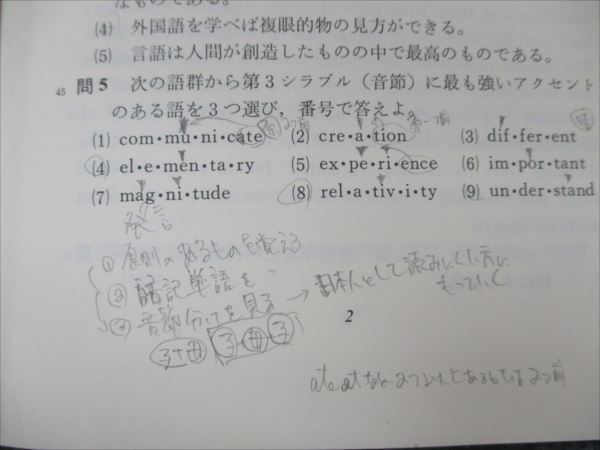 (4) 外国語を学べば複眼的物の見方ができる。
(5) 言語は人間が創造したものの中で最高のものである。
45 問5 次の語群から第3シラブル（音節）に最も強いアクセント
のある語を3つ選び，番号で答えよ。
(1) com・mu・ni・cate (2) cre・a・tion (3) dif・fer・ent
(4) el・e・men・ta・ry (5) ex・pe・ri・ence (6) im・por・tant
(7) mag・ni・tude (8) rel・a・tiv・i・ty (9) un・der・stand
① 原則のあるものを覚える
② 暗記単語を 〃
③ 音節分けを見る → 日本人として読みにくい方に
もっていく
子+母 子-母-子
2